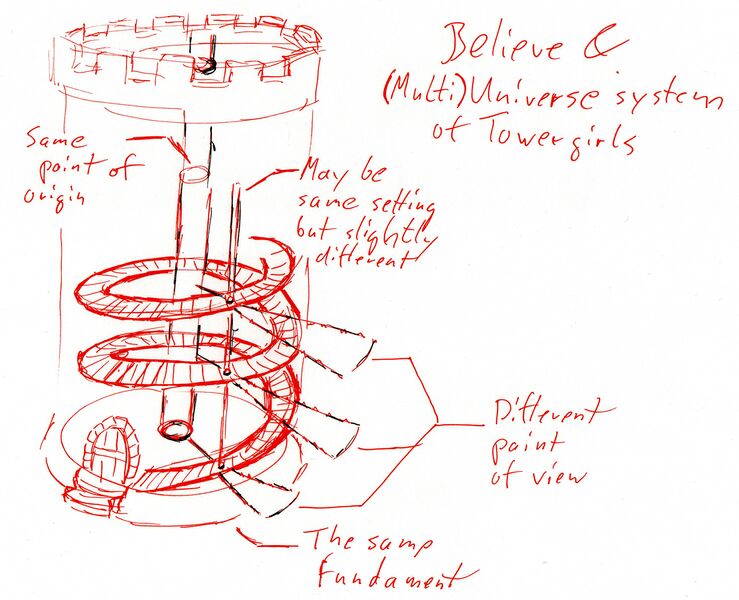 Believe &
(Multi)Universe system
of Towergirls
Same
point of
origin
May be
same setting
but slightly
different
Different
point
of view
The same
Fundament